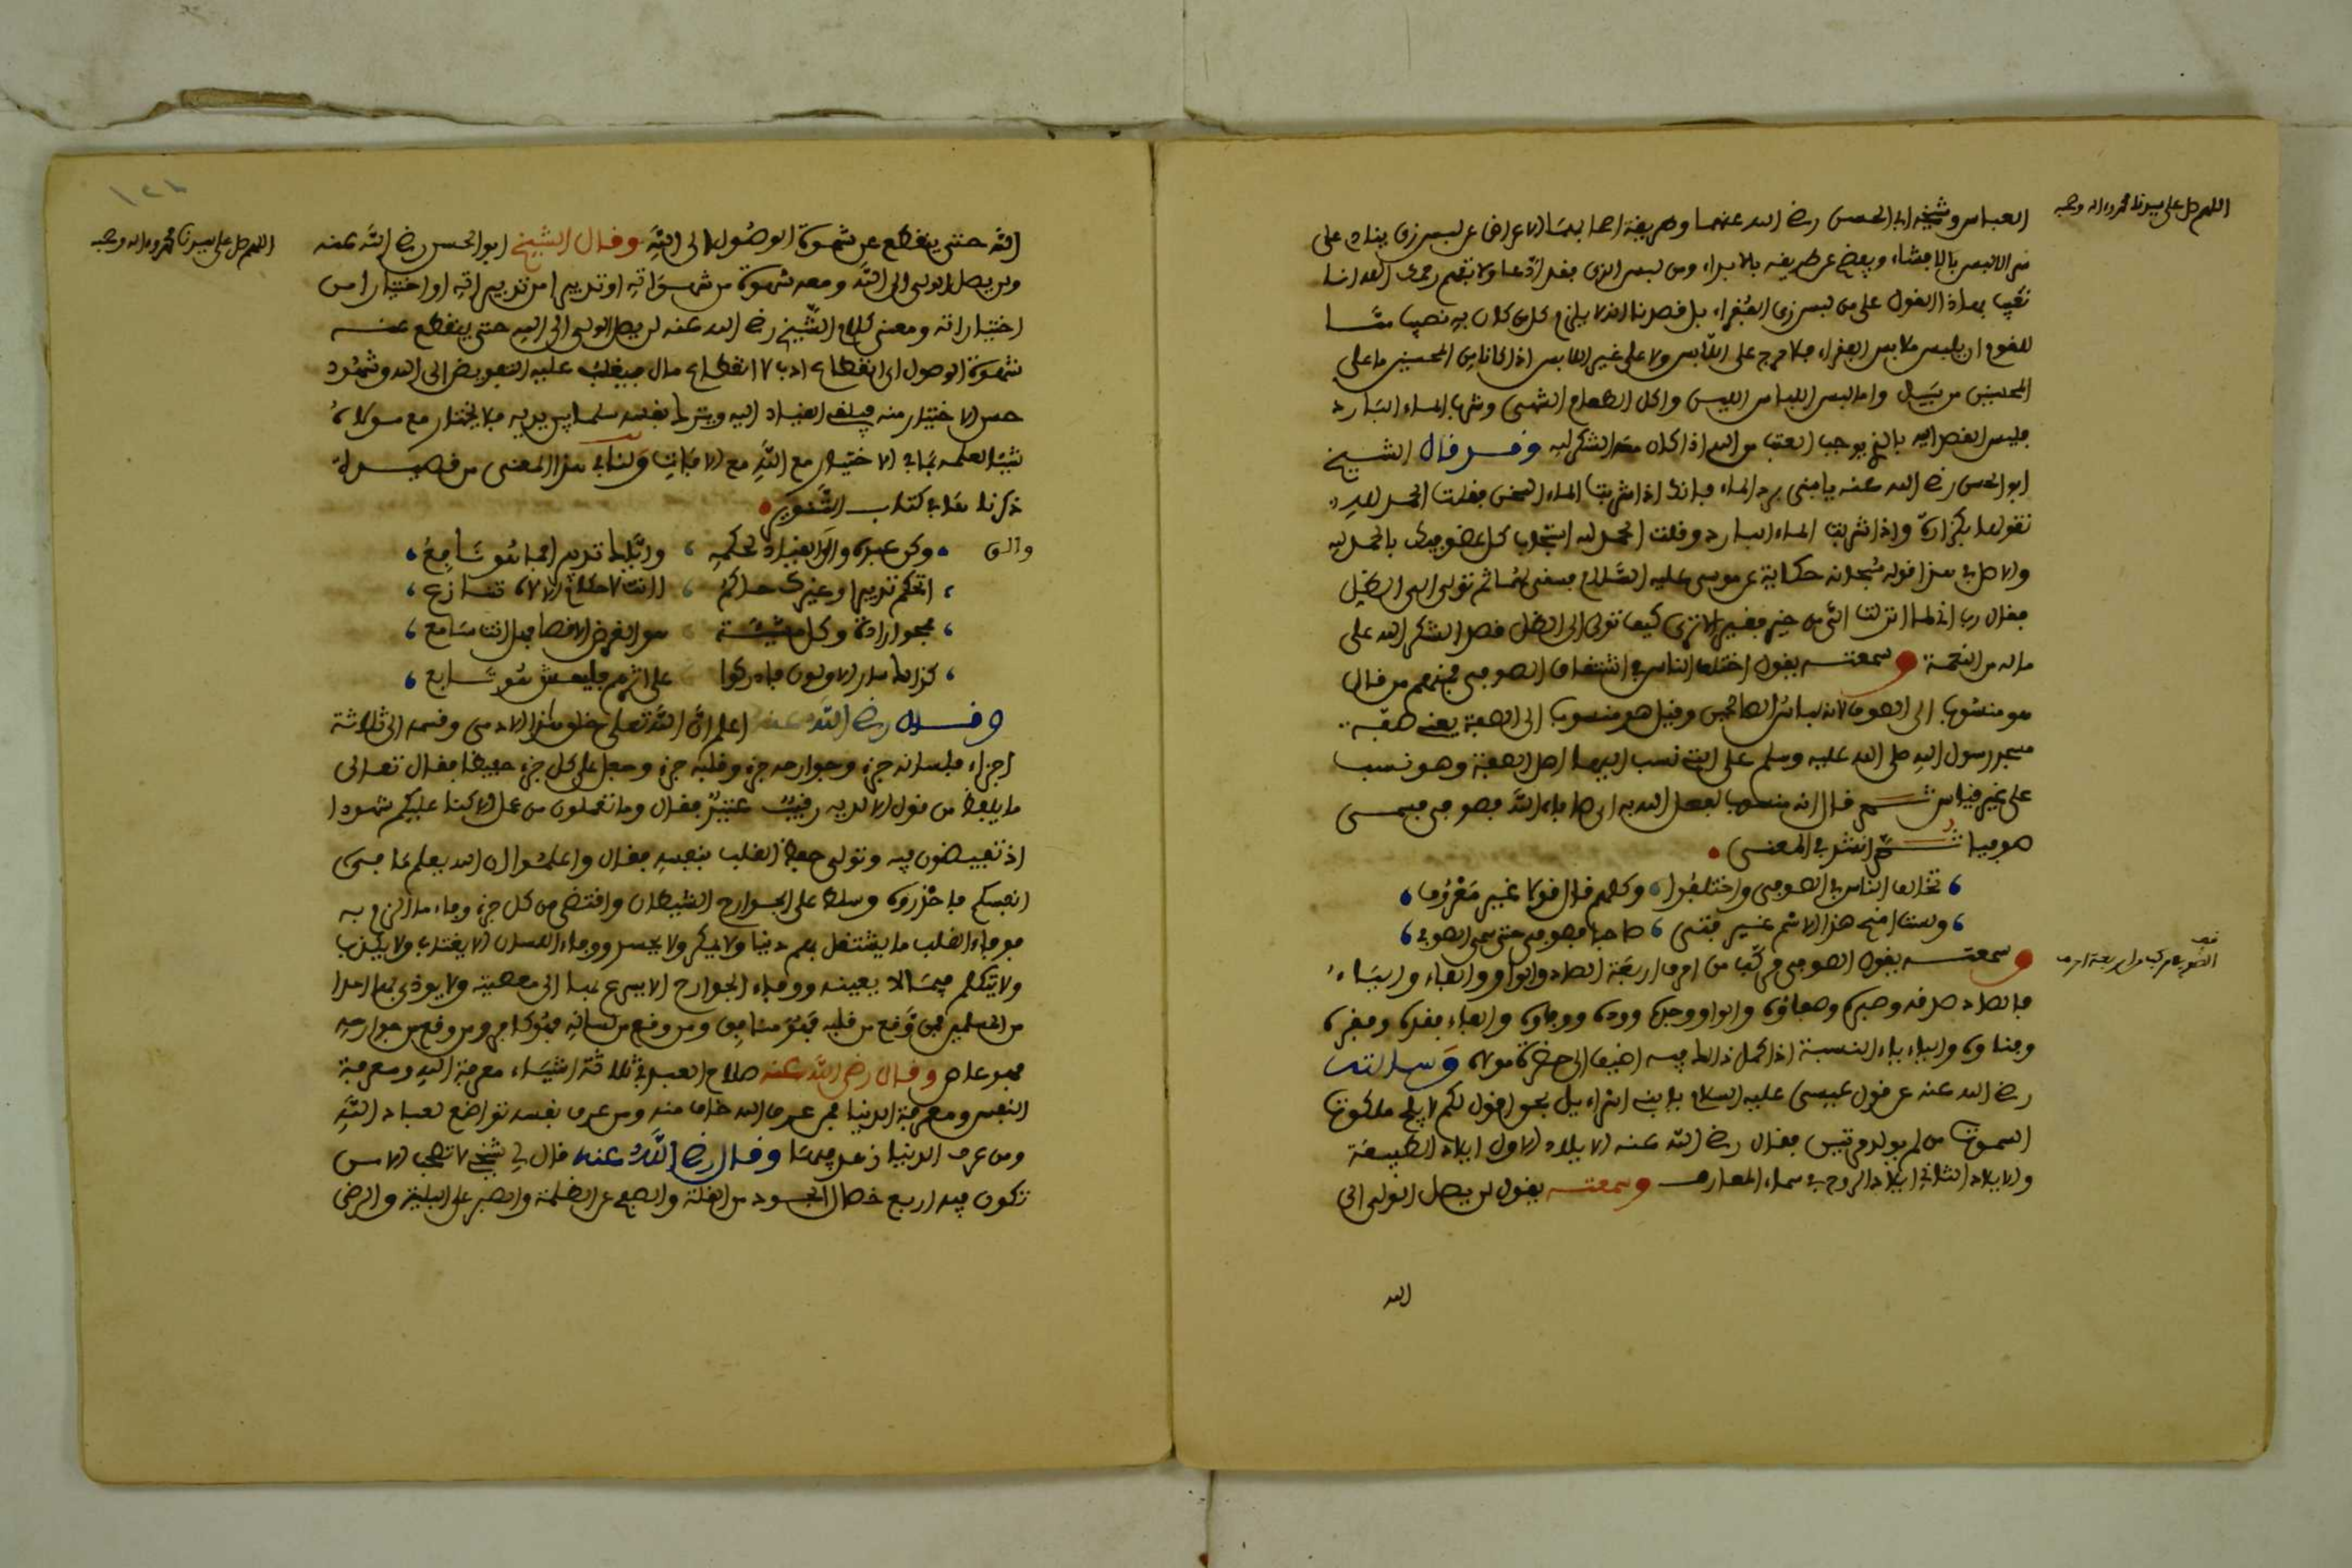 اللهم صل على سيدنا محمد واله وصحبه
العباس وشيخه ابي الحسن رضي الله عنهما وطريقة اصحابهما الاعراض عن لبس زي ينادي على
سر اللابس بالافشاء ويفصح عن طريقه بالابداء ومن لبس الزي فقد ادعا ولا تفهم رحمك الله انا
نعيب بهذا القول على من لبس زي الفقراء بل قصدنا انه لا يلزم كل من كان به نصيب مما
للقوم ان يلبس ملابس الفقراء فلا حرج على اللابس ولا على غير اللابس اذا كانا من المحسنين ما على
المحسنين من سبيل واما لبس اللباس اللين واكل الطعام الشهي وشرب الماء البارد
فليس القصد اليه بالذي يوجب العتب من الله اذا كان معه الشكر لله وقد قال الشيخ
ابو الحسن رضي الله عنه يا بني برد الماء فانك اذا شربت الماء السخن فقلت الحمد لله
تقولها بكزازة واذا شربت الماء البارد وقلت الحمد لله استجاب كل عضو فيك بالحمد لله
والاصل في هذا قوله سبحانه حكاية عن موسى عليه السلام فسقى لهما ثم تولى الى الظل
فقال رب اني لما انزلت الي من خير فقير الا ترى كيف تولى الى الظل قصدا لشكر الله على
ما له من النعمة وسمعته يقول اختلف الناس في اشتقاق الصوفي فمنهم من قال
هو منسوب الى الصوف لانه لباس الصالحين وقيل هو منسوب الى الصفة يعني صفة
مسجد رسول الله صلى الله عليه وسلم على التي نسب اليها اهل الصفة وهو نسب
على غير قياس ثم قال انه منسوب لفعل الله به اي صافاه الله فصوفي فسمى
صوفيا ثم انشد في المعنى
تخالف الناس في الصوفي واختلفوا وكلهم قال قولا غير معروف
ولست امنح هذا الاسم غير فتى صافا فصوفي حتى سمي الصوفي
وسمعته يقول الصوفي مركب من احرف اربعة الصاد والواو والفاء والياء
الصوفي مركب من اربعة احرف
فالصاد صدقه وصبره وصفاؤه والواو وجده ووده ووفاؤه والفاء فقده وفقره
وفناؤه والياء ياء النسبة اذا كمل ذالك فيه اضيف الى حضرة مولاه وسالته
رضي الله عنه عن قول عيسى عليه السلام يا بني اسراءيل بحق اقول لكم لا يلج ملكوت
السموت من لم يولد مرتين فقال رضي الله عنه الايلاد الاول ايلاد الطبيعة
والايلاد الثاني ايلاد الروح في سماء المعارف وسمعته يقول لن يصل الولي الى
الله
اللهم صل على سيدنا محمد واله وصحبه
الله حتى ينقطع عن شهوة الوصول الى الله وقال الشيخ ابو الحسن رضي الله عنه
ولن يصل الولي الى الله ومعه شهوة من شهواته او تدبير من تدبيراته او اختيار من
اختياراته ومعنى كلام الشيخ رضي الله عنه لن يصل الولي الى الله حتى ينقطع عنه
شهوة الوصول اي انقطاع ادب لا انقطاع ملل فيغلب عليه التفويض الى الله وشهود
حسن الاختيار منه فيلقي القياد اليه ويترك نفسه سلما بين يديه فلا يختار مع مولاه
شيئا لعلمه بما في الاختيار مع الله مع الافات ولنا في هذا المعنى من قصيدة
ذكرناها في كتاب التنوير
وكن عبده والق القياد لحكمه واياك تدبيرا فما هو نافع
والق
اتحكم تدبيرا وغيرك حاكم اانت لاحكام الالاه تنازع
فمحو ارادة وكل مشيئة هو الغرض الاقصا فهل انت سامع
كذالك سار الاولون فادركوا على اثرهم فليمش من هو تابع
وقال رضي الله عنه اعلم ان الله تعلى خلق هذا الادمي وقسمه الى ثلاثة
اجزاء فلسانه جزء وجوارحه جزء وقلبه جزء وجعل على كل جزء حفيظا فقال تعالى
ما يلفظ من قول الا لديه رقيب عتيد فقال وما تعملون من عمل الا كنا عليكم شهودا
اذ تفيضون فيه وتولى حفظ القلب بنفسه فقال واعلموا ان الله يعلم ما في
انفسكم فاحذروه وسلط على الجوارح الشيطان واقتضى من كل جزء وفاء ما الزم به
فوفاء القلب ما يشتغل بهم دنيا ولا بمكر ولا بحسد ووفاء اللسان الا يغتاب ولا يكذب
ولا يتكلم فيما لا يعينه ووفاء الجوارح الا يسرع بها الى معصية ولا يوذي بها احدا
من المسلمين فمن وقع من قلبه فهو منافق ومن وقع من لسانه فهو كافر ومن وقع من جوارحه
فهو عاص وقال رضي الله عنه صلاح العبد في ثلاثة اشياء معرفة الله ومعرفة
النفس ومعرفة الدنيا فمن عرف الله خاف منه ومن عرف نفسه تواضع لعباد الله
ومن عرف الدنيا زهد فيها وقال رضي الله عنه قال لي شيخي لا تصحب الا من
تكون فيه اربع خصال الجود من القلة والصفح عن الظلمة والصبر على البلية والرضى